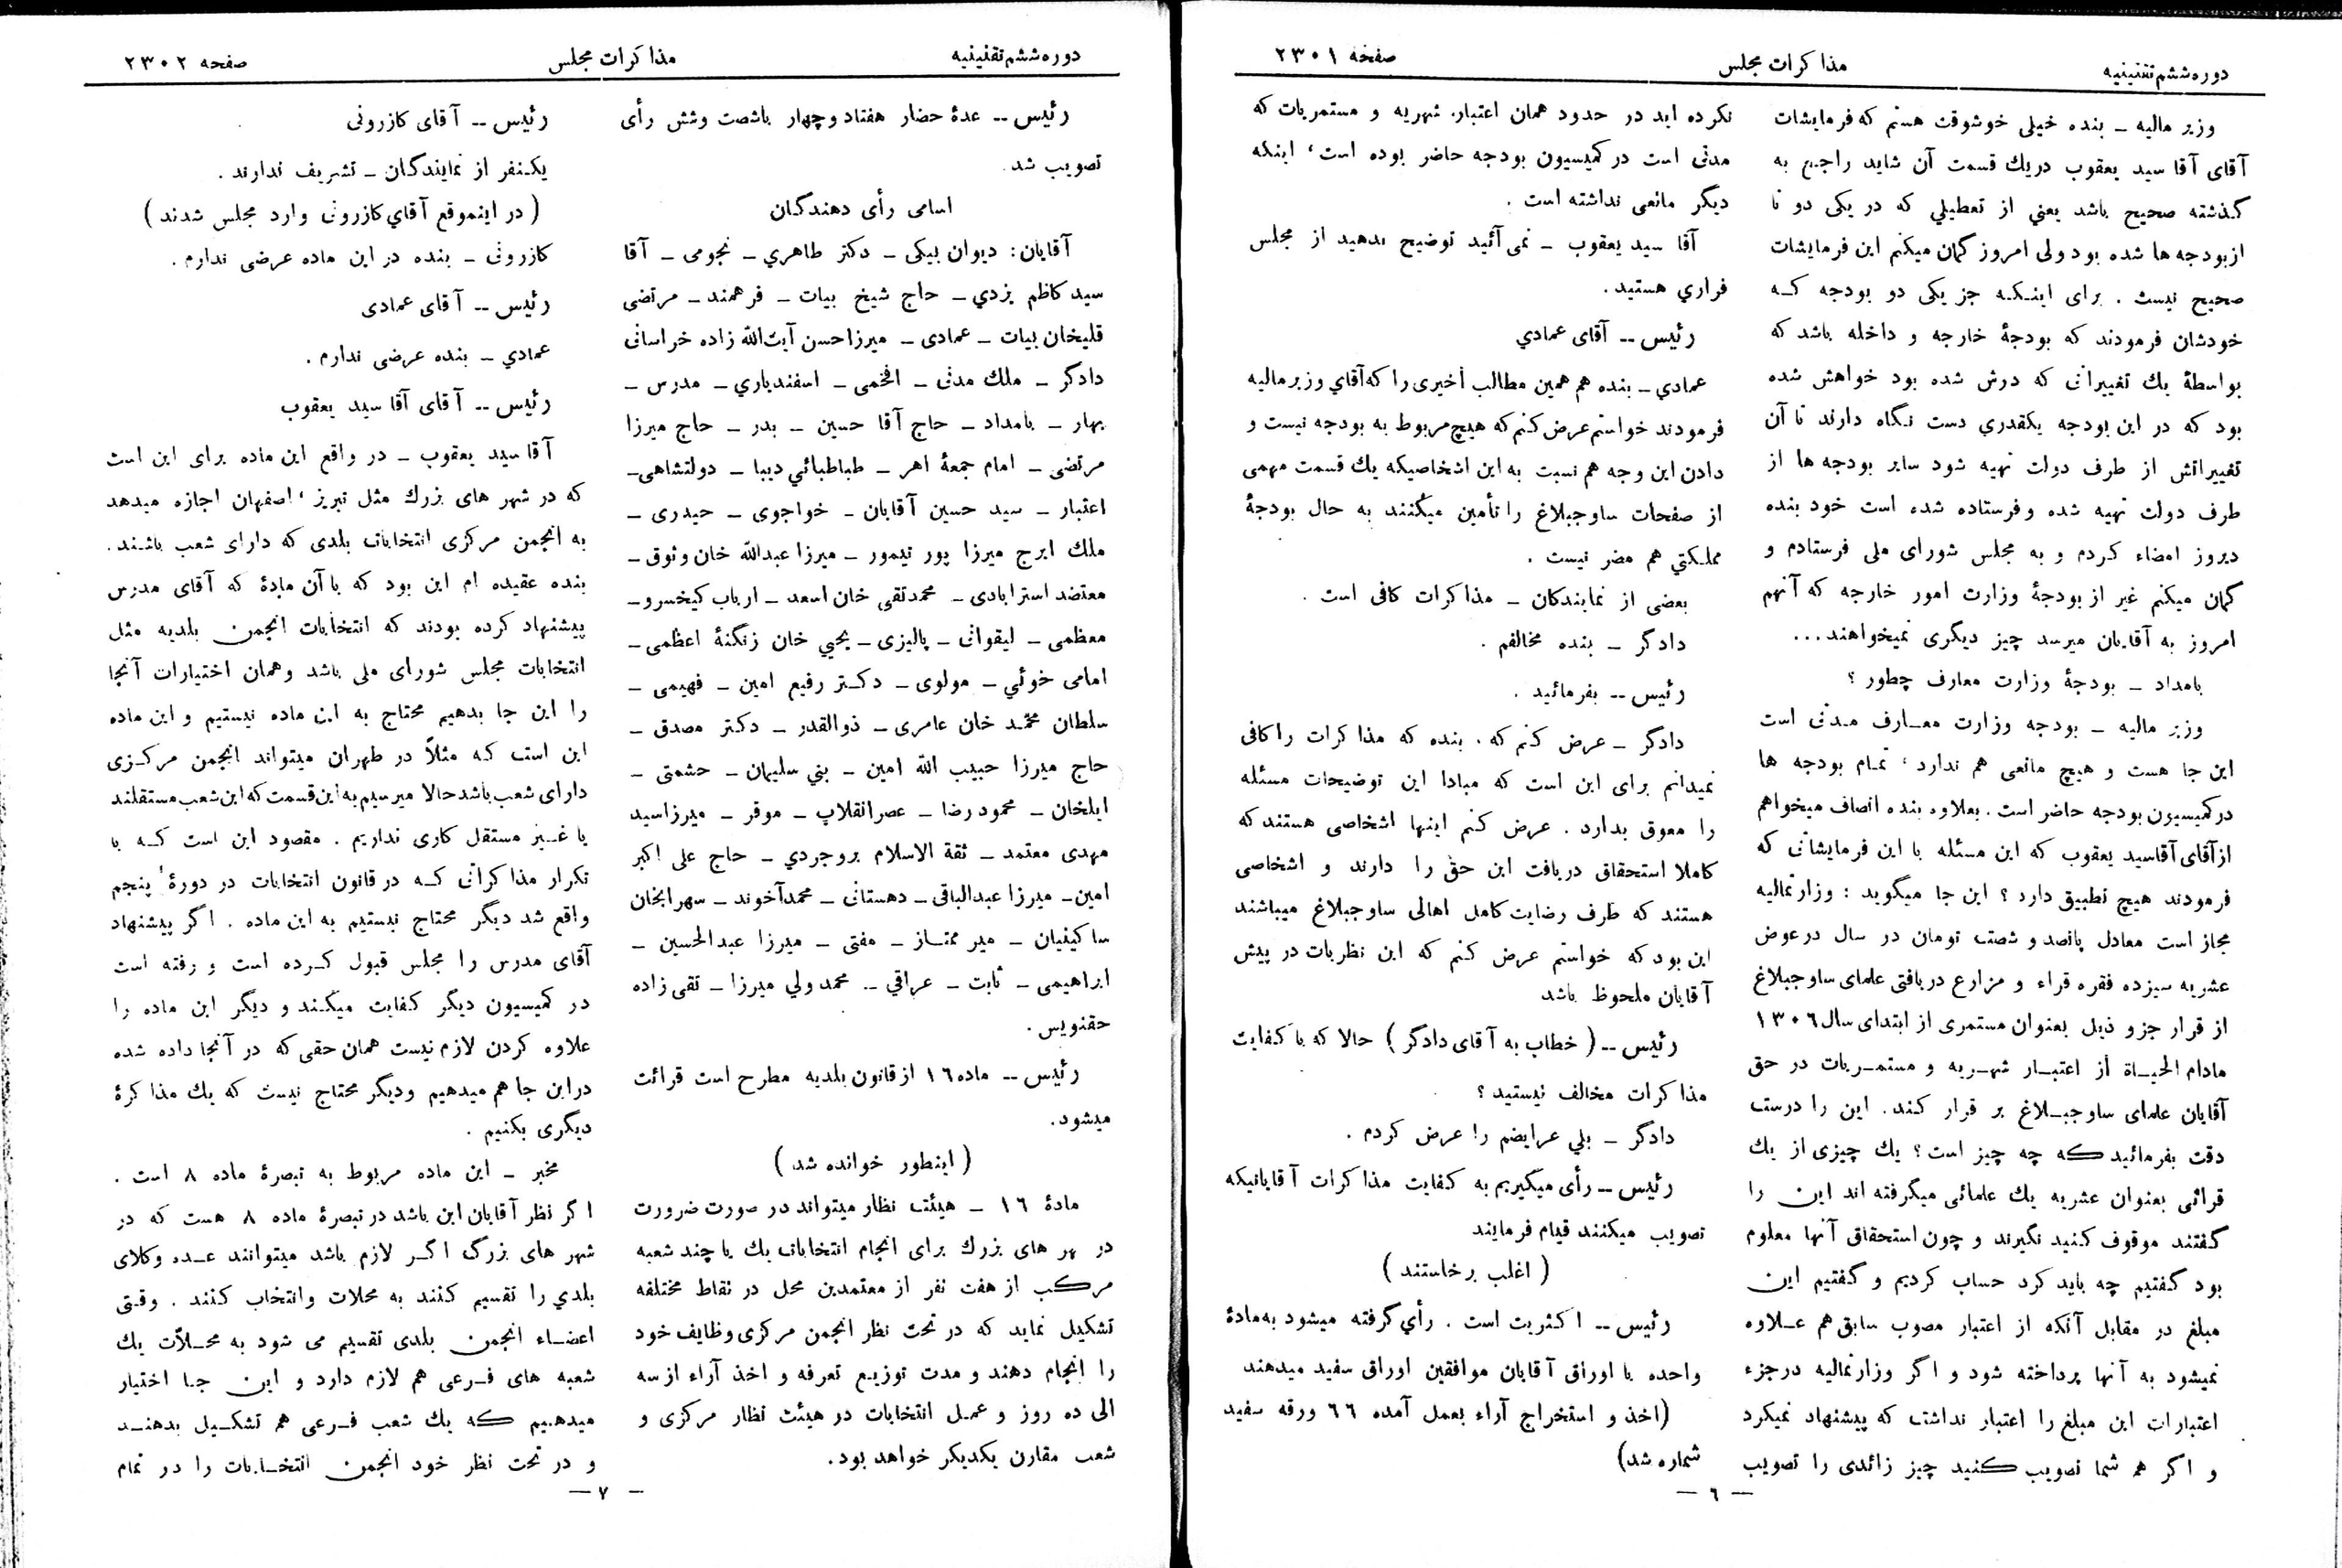 دوره ششم تقنینیه
مذاکرات مجلس
صفحه ۲۳۰۱
وزیر مالیه ــ بنده خیلی خوشوقت هستم که فرمایشات
آقای آقا سید یعقوب دریك قسمت آن شاید راجع به
گذشته صحیح باشد یعني از تعطیلي که در یکی دو تا
از بودجه ها شده بود ولی امروز گمان میکنم این فرمایشات
صحیح نیست . برای اینکه جز یکی دو بودجه که
خودشان فرمودند که بودجهٔ خارجه و داخله باشد که
بواسطهٔ یك تغییراتی که درش شده بود خواهش شده
بود که در این بودجه یکقدري دست نگاه دارند تا آن
تغییراتش از طرف دولت تهیه شود سایر بودجه ها از
طرف دولت تهیه شده و فرستاده شده است خود بنده
دیروز امضاء کردم و به مجلس شورای ملی فرستادم و
گمان میکنم غیر از بودجهٔ وزارت امور خارجه که آنهم
امروز به آقایان میرسد چیز دیگری نمیخواهند...
بامداد ــ بودجهٔ وزارت معارف چطور ؟
وزیر مالیه ــ بودجه وزارت معارف مدتی است
این جا هست و هیچ مانعی هم ندارد ، تمام بودجه ها
در کمیسیون بودجه حاضر است . بعلاوه بنده انصاف میخواهم
از آقای آقاسید یعقوب که این مسئله با این فرمایشاتی که
فرمودند هیچ تطبیق دارد ؟ این جا میگوید : وزارتمالیه
مجاز است معادل پانصد و شصت تومان در سال در عوض
عشریه سیزده فقره قراء و مزارع دریافتی علمای ساوجبلاغ
از قرار جزو ذیل بعنوان مستمری از ابتدای سال ۱۳۰۶
مادام الحیاة از اعتبار شهریه و مستمریات در حق
آقایان علمای ساوجبلاغ بر قرار کند. این را درست
دقت بفرمائید که چه چیز است ؟ یك چیزی از یك
قرائی بعنوان عشریه یك علمائی میگرفته اند این را
گفتند موقوف کنید نگیرند و چون استحقاق آنها معلوم
بود گفتیم چه باید کرد حساب کردیم و گفتیم این
مبلغ در مقابل آنکه از اعتبار مصوب سابق هم علاوه
نمیشود به آنها پرداخته شود و اگر وزارتمالیه درجزء
اعتبارات این مبلغ را اعتبار نداشت که پیشنهاد نمیکرد
و اگر هم شما تصویب کنید چیز زائدی را تصویب
نکرده اید در حدود همان اعتبار، شهریه و مستمریات که
مدتی است در کمیسیون بودجه حاضر بوده است ، اینکه
دیگر مانعی نداشته است .
آقا سید یعقوب ــ نمی آئید توضیح بدهید از مجلس
فراري هستید .
رئیس ــ آقای عمادي
عمادي ــ بنده هم همین مطالب اخیری را که آقاي وزیر مالیه
فرمودند خواستم عرض کنم که هیچ مربوط به بودجه نیست و
دادن این وجه هم نسبت به این اشخاصیکه یك قسمت مهمی
از صفحات ساوجبلاغ را تأمین میکنند به حال بودجهٔ
مملکتي هم مضر نیست .
بعضی از نمایندگان ــ مذاکرات کافی است .
دادگر ــ بنده مخالفم .
رئیس ــ بفرمائید .
دادگر ــ عرض کنم که . بنده که مذاکرات را کافی
نمیدانم برای این است که مبادا این توضیحات مسئله
را معوق بدارد . عرض کنم اینها اشخاصی هستند که
کاملا استحقاق دریافت این حق را دارند و اشخاصی
هستند که طرف رضایت کامل اهالی ساوجبلاغ میباشند
این بود که خواستم عرض کنم که این نظریات در پیش
آقایان ملحوظ باشد
رئیس ــ ( خطاب به آقای دادگر ) حالا که با کفایت
مذاکرات مخالف نیستید ؟
دادگر ــ بلي عرایضم را عرض کردم .
رئیس ــ رأی میگیریم به کفایت مذاکرات آقایانیکه
تصویب میکنند قیام فرمایند
( اغلب برخاستند )
رئیس ــ اکثریت است . رأي گرفته میشود به مادهٔ
واحده با اوراق آقایان موافقین اوراق سفید میدهند
(اخذ و استخراج آراء بعمل آمده ٦٦ ورقه سفید
شماره شد)
— ٦ —
دوره ششم تقنینیه
مذاکرات مجلس
صفحه ۲۳۰۲
رئیس ــ عدهٔ حضار هفتاد و چهار باشصت وشش رأی
تصویب شد.
اسامی رأی دهندگان
آقایان: دیوان بیکی ــ دکتر طاهري ــ نجومی ــ آقا
سید کاظم یزدي ــ حاج شیخ بیات ــ فرهمند ــ مرتضی
قلیخان بیات ــ عمادی ــ میرزا حسن آیت الله زاده خراسانی
دادگر ــ ملك مدنی ــ افخمی ــ اسفندیاري ــ مدرس ــ
بهار ــ بامداد ــ حاج آقا حسین ــ بدر ــ حاج میرزا
مرتضی ــ امام جمعهٔ اهر ــ طباطبائي دیبا ــ دولتشاهی ــ
اعتبار ــ سید حسین آقایان ــ خواجوی ــ حیدری ــ
ملك ایرج میرزا پور تیمور ــ میرزا عبدالله خان وثوق ــ
معتضد استرابادی ــ محمدتقی خان اسعد ــ ارباب کیخسرو ــ
معظمی ــ لیقوانی ــ پالیزی ــ یحیي خان زنگنهٔ اعظمی ــ
امامی خوئي ــ مولوی ــ دکتر رفیع امین ــ فهیمی ــ
سلطان محمد خان عامری ــ ذوالقدر ــ دکتر مصدق ــ
حاج میرزا حبیب الله امین ــ بني سلیمان ــ حشمتی ــ
ایلخان ــ محمود رضا ــ عصرانقلاب ــ موقر ــ میرزاسید
مهدی معتمد ــ ثقة الاسلام بروجردي ــ حاج علی اکبر
امین ــ میرزا عبدالباقی ــ دهستانی ــ محمدآخوند ــ سهرابخان
ساکینیان ــ میر ممتاز ــ مفتی ــ میرزا عبدالحسین ــ
ابراهیمی ــ ثابت ــ عراقي ــ محمد ولي میرزا ــ تقی زاده
حقنویس .
رئیس ــ ماده ۱٦ از قانون بلدیه مطرح است قرائت
میشود.
( اینطور خوانده شد )
مادهٔ ۱٦ ــ هیئت نظار میتواند در صورت ضرورت
در هر های بزرك برای انجام انتخابات یك یا چند شعبه
مرکب از هفت نفر از معتمدین محل در نقاط مختلفه
تشکیل نماید که در تحت نظر انجمن مرکزی وظایف خود
را انجام دهند و مدت توزیع تعرفه و اخذ آراء از سه
الی ده روز و عمل انتخابات در هیئت نظار مرکزی و
شعب مقارن یکدیکر خواهد بود.
رئیس ــ آقای کازرونی
یکنفر از نمایندگان ــ تشریف ندارند .
( در اینموقع آقاي کازرونی وارد مجلس شدند )
کازرونی ــ بنده در این ماده عرضی ندارم .
رئیس ــ آقای عمادی
عمادي ــ بنده عرضی ندارم .
رئیس ــ آقای آقا سید یعقوب
آقا سید یعقوب ــ در واقع این ماده برای این است
که در شهر های بزرك مثل تبریز ، اصفهان اجازه میدهد
به انجمن مرکزی انتخابات بلدی که دارای شعب باشند .
بنده عقیده ام این بود که با آن مادهٔ که آقای مدرس
پیشنهاد کرده بودند که انتخابات انجمن بلدیه مثل
انتخابات مجلس شورای ملی باشد وهمان اختیارات آنجا
را این جا بدهیم محتاج به این ماده نیستیم و این ماده
این است که مثلاً در طهران میتواند انجمن مرکزی
دارای شعب باشد حالا میرسیم به این قسمت که این شعب مستقلند
یا غیر مستقل کاری نداریم . مقصود این است که با
تکرار مذاکراتی که در قانون انتخابات در دورهٔ پنجم
واقع شد دیگر محتاج نیستیم به این ماده . اگر پیشنهاد
آقای مدرس را مجلس قبول کرده است و رفته است
در کمیسیون دیگر کفایت میکند و دیگر این ماده را
علاوه کردن لازم نیست همان حقی که در آنجا داده شده
دراین جا هم میدهیم ودیگر محتاج نیست که یك مذاکرهٔ
دیگری بکنیم .
مخبر ــ این ماده مربوط به تبصرهٔ ماده ۸ است .
اگر نظر آقایان این باشد در تبصرهٔ ماده ۸ هست که در
شهر های بزرگ اگر لازم باشد میتوانند عده وکلای
بلدي را تقسیم کنند به محلات وانتخاب کنند . وقتی
اعضاء انجمن بلدی تقسیم می شود به محلّات یك
شعبه های فرعی هم لازم دارد و این جا اختیار
میدهیم که یك شعب فرعی هم تشکیل بدهند
و در تحت نظر خود انجمن انتخابات را در تمام
— ۷ —